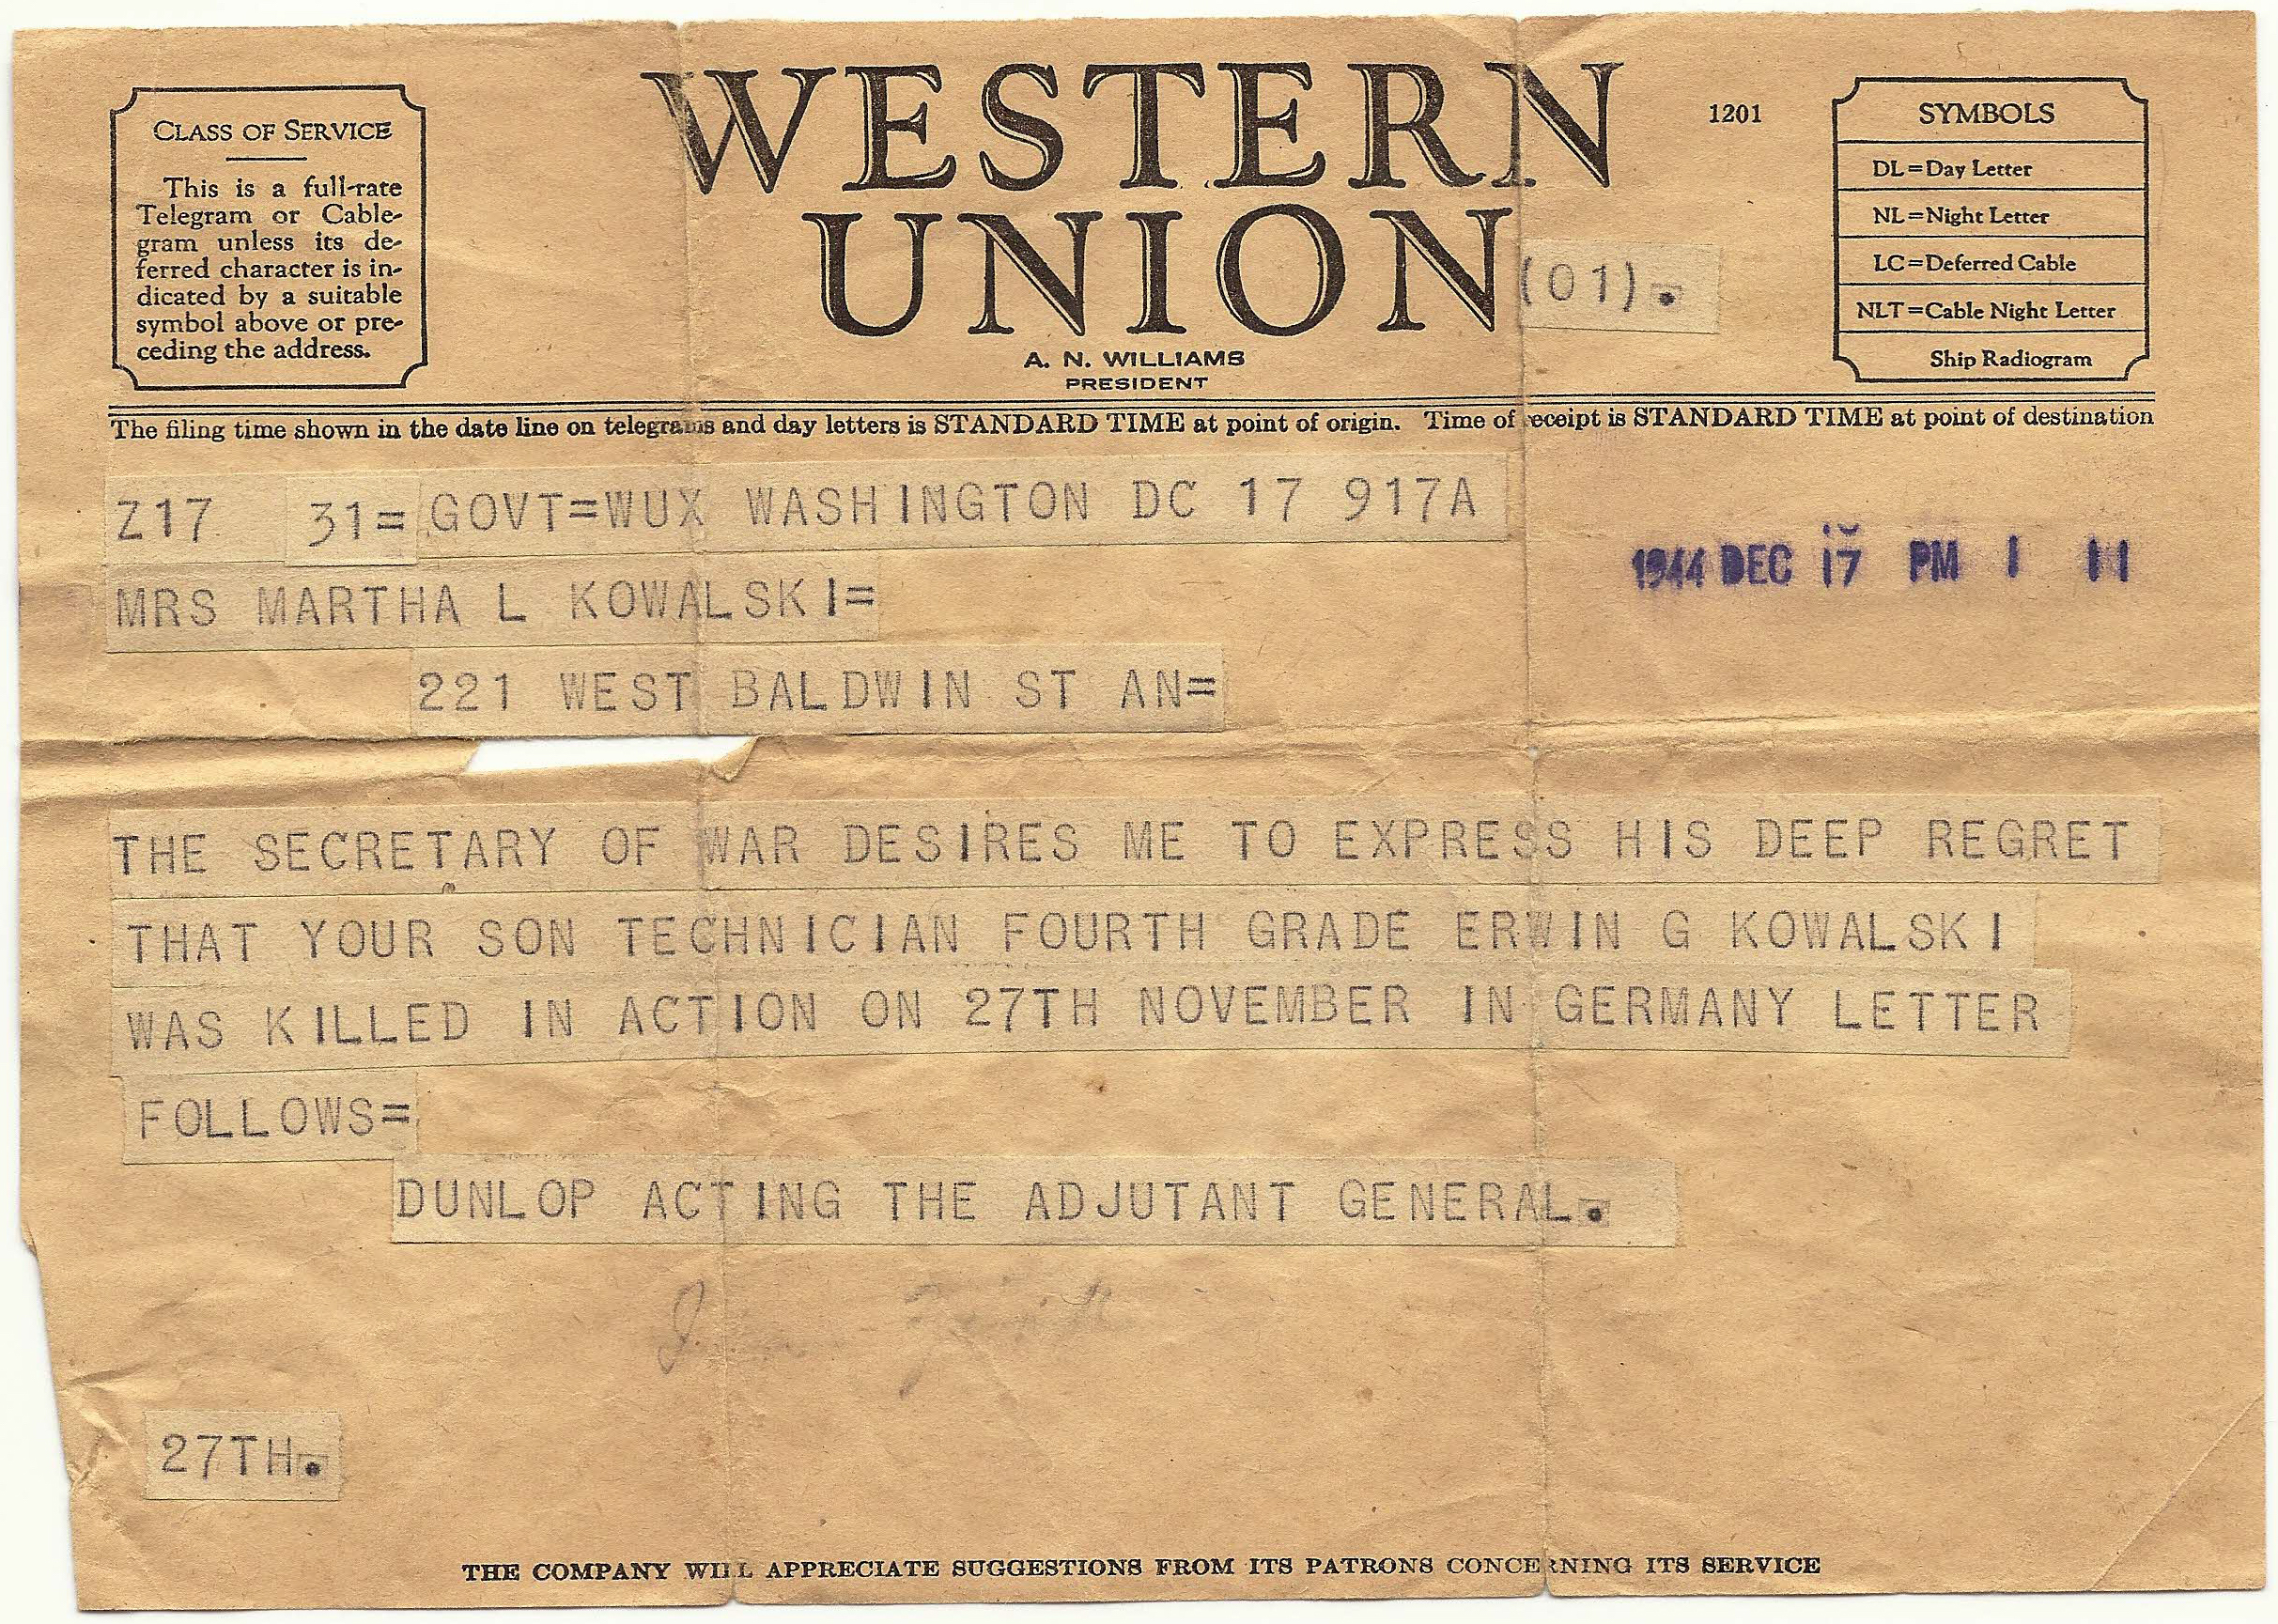 CLASS OF SERVICE
This is a full-rate
Telegram or Cable-
gram unless its de-
ferred character is in-
dicated by a suitable
symbol above or pre-
ceding the address.
WESTERN
UNION
A. N. WILLIAMS
PRESIDENT
1201
(01).
SYMBOLS
DL=Day Letter
NL=Night Letter
LC=Deferred Cable
NLT=Cable Night Letter
Ship Radiogram
The filing time shown in the date line on telegrams and day letters is STANDARD TIME at point of origin. Time of receipt is STANDARD TIME at point of destination
Z17 31=GOVT=WUX WASHINGTON DC 17 917A
1944 DEC 17 PM 1 11
MRS MARTHA L KOWALSKI=
221 WEST BALDWIN ST AN=
THE SECRETARY OF WAR DESIRES ME TO EXPRESS HIS DEEP REGRET
THAT YOUR SON TECHNICIAN FOURTH GRADE ERWIN G KOWALSKI
WAS KILLED IN ACTION ON 27TH NOVEMBER IN GERMANY LETTER
FOLLOWS=
DUNLOP ACTING THE ADJUTANT GENERAL.
27TH.
THE COMPANY WILL APPRECIATE SUGGESTIONS FROM ITS PATRONS CONCERNING ITS SERVICE